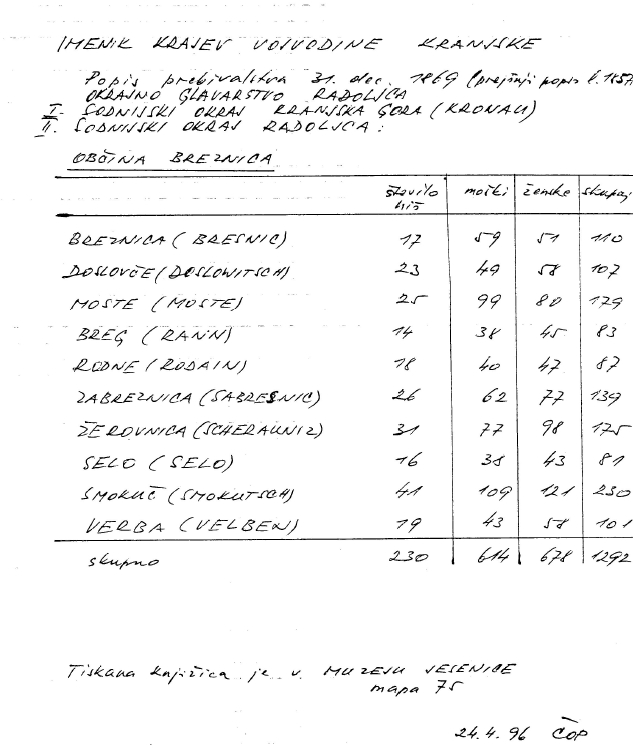 IMENIK KRAJEV VOJVODINE KRANJSKE
Popis prebivalstva 31. dec. 1869 (prejšnji popis l. 1857
OKRAJNO GLAVARSTVO RADOLJCA
I. SODNIJSKI OKRAJ KRANJSKA GORA (KRONAU)
II. SODNIJSKI OKRAJ RADOLJCA:
OBČINA BREZNICA
število hiš moški ženske skupaj
BREZNICA (BRESNIC) 17 59 51 110
DOSLOVČE (DOSLOWITSCH) 23 49 58 107
MOSTE (MOSTE) 25 99 80 179
BREG (RANN) 14 38 45 83
RODNE (RODAIN) 18 40 47 87
ZABREZNICA (SABRESNIC) 26 62 77 139
ŽEROVNICA (SCHERAUNIZ) 31 77 98 175
SELO (SELO) 16 38 43 81
SMOKUČ (SMOKUTSCH) 41 109 121 230
VERBA (VELBEN) 19 43 58 101
skupno 230 614 678 1292
Tiskana knjižica je v MUZEJU JESENICE
mapa 75
24.4.96 ČOP